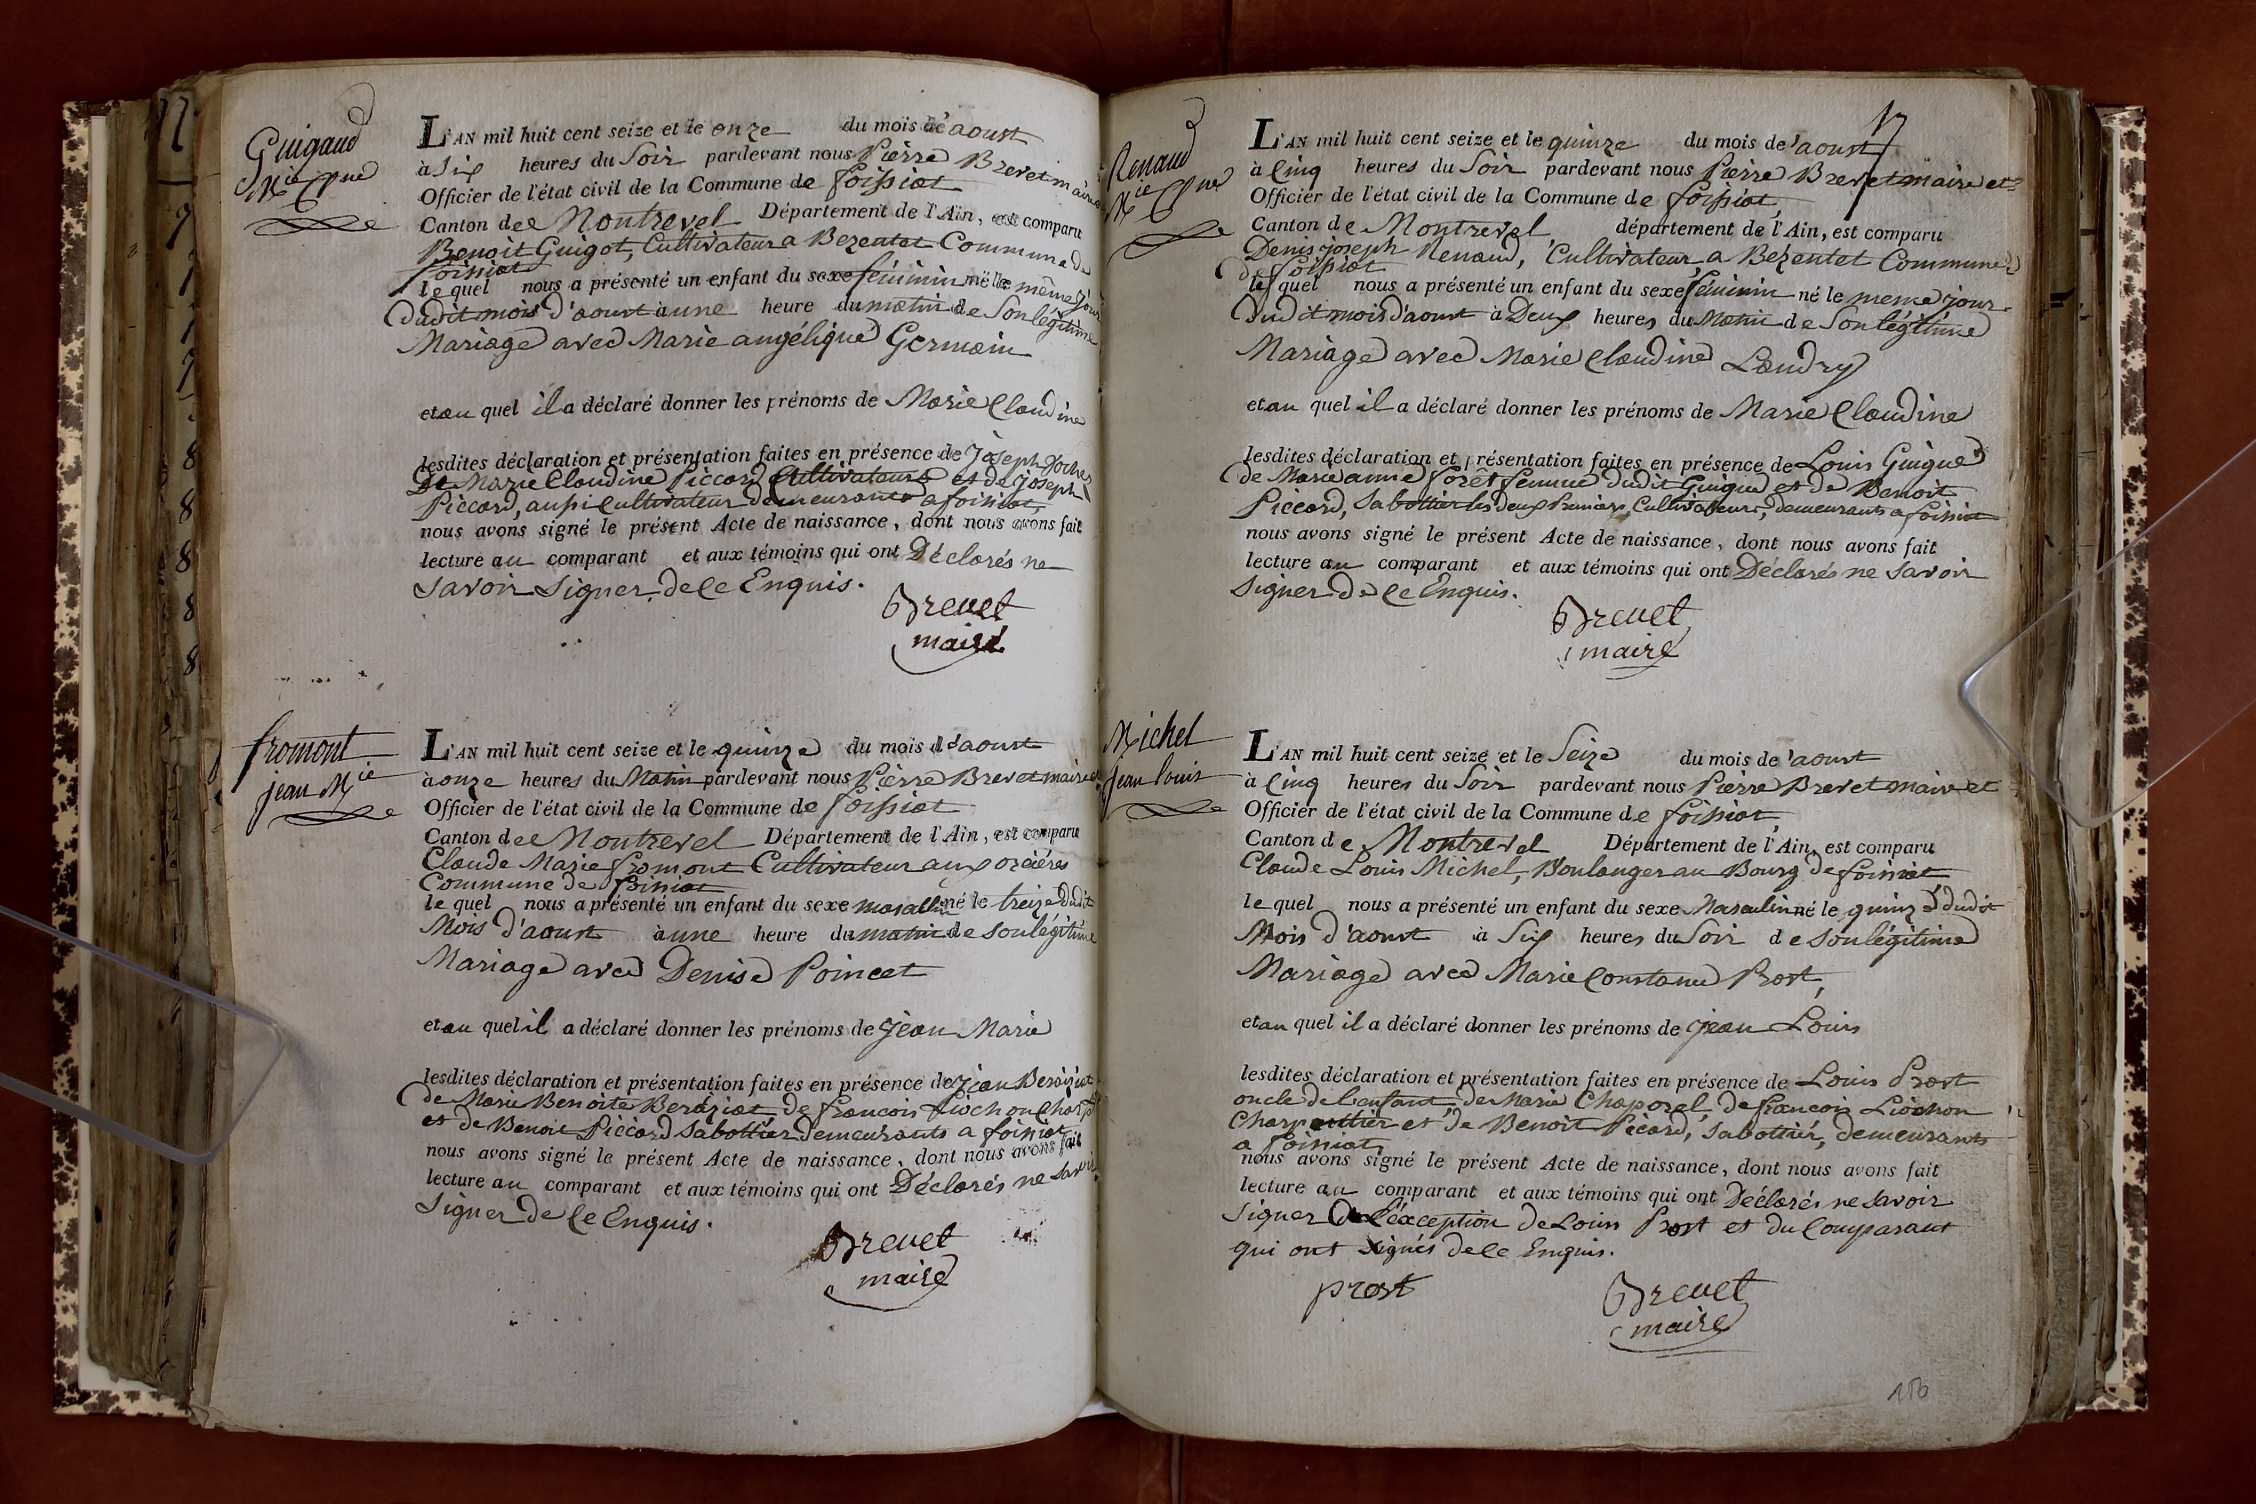 Guigaud
Mie Cne
L'AN mil huit cent seize et le onze du mois de aoust
à Six heures du Soir pardevant nous Pierre Brevet maire
Officier de l'état civil de la Commune de foissiat
Canton de Montrevel Département de l'Ain, est comparu
Benoit Guigot, Cultivateur a Bezentet Commune de
foissiat
le quel nous a présenté un enfant du sexe féminin né le même jour
dudit mois d'aoust à une heure du matin de Son légitime
Mariage avec Marie angélique Germain
et au quel il a déclaré donner les prénoms de Marie Claudine
lesdites déclaration et présentation faites en présence de Joseph
De Marie Claudine Piccard Cultivateurs et de Joseph
Piccard, aussi Cultivateur demeurants a foissiat,
nous avons signé le présent Acte de naissance, dont nous avons fait
lecture au comparant et aux témoins qui ont Déclarés ne
Savoir Signer de ce Enquis.
Brevet
maire
fromont
jean Mie
L'AN mil huit cent seize et le quinze du mois d'aoust
à onze heures du Matin pardevant nous Pierre Brevet maire et
Officier de l'état civil de la Commune de foissiat
Canton de Montrevel Département de l'Ain, est comparu
Claude Marie fromont Cultivateur aux orcières
Commune de foissiat
le quel nous a présenté un enfant du sexe masculin né le treize dudit
Mois d'aoust à une heure du matin de son légitime
Mariage avec Denise Poincet
et au quel il a déclaré donner les prénoms de Jean Marie
lesdites déclaration et présentation faites en présence de Jean
de Marie Benoite Beraziat de francois Liochon Charp
et de Benoit Piccard Sabottier demeurants a foissiat
nous avons signé le présent Acte de naissance, dont nous avons fait
lecture au comparant et aux témoins qui ont Déclarés ne Savoir
Signer de Ce Enquis.
Brevet
maire
17
Renaud
Mie Cne
L'AN mil huit cent seize et le quinze du mois de 'aoust
à Cinq heures du Soir pardevant nous Pierre Brevet maire et
Officier de l'état civil de la Commune de foissiat,
Canton de Montrevel département de l'Ain, est comparu
Denis joseph Renaud, Cultivateur a Bezentet Commune
de foissiat
le quel nous a présenté un enfant du sexe féminin né le meme jour
Dudit mois d'aoust à Deux heures du Matin de Son légitime
Mariage avec Marie Claudine Landry
et au quel il a déclaré donner les prénoms de Marie Claudine
lesdites déclaration et présentation faites en présence de Louis Guigue
de Marie anne forêt femme dudit Guigue et de Benoit
Piccard, Sabottier les deux Premiers Cultivateurs, demeurants a foissiat
nous avons signé le présent Acte de naissance, dont nous avons fait
lecture au comparant et aux témoins qui ont Déclarés ne Savoir
Signer De Ce Enquis.
Brevet
maire
Michel
jean louis
L'AN mil huit cent seize et le Seize du mois de 'aoust
à Cinq heures du Soir pardevant nous Pierre Brevet maire et
Officier de l'état civil de la Commune de foissiat,
Canton de Montrevel Département de l'Ain, est comparu
Claude Louis Michel, Boulanger au Bourg de foissiat
le quel nous a présenté un enfant du sexe Masculin né le quinze dudit
Mois d'aoust à Six heures du Soir de son légitime
Mariage avec Marie Constance Prost,
et au quel il a déclaré donner les prénoms de jean Louis
lesdites déclaration et présentation faites en présence de Louis Prost
oncle de l'enfant de Marie Chaporel de francois Liochon
Charpentier et de Benoit Picard, Sabottier, demeurants
a foissiat,
nous avons signé le présent Acte de naissance, dont nous avons fait
lecture au comparant et aux témoins qui ont Déclarés ne Savoir
Signer A L'exception de Louis Prost et du Comparant
qui ont Signés de Ce Enquis.
prost
Brevet
maire
156